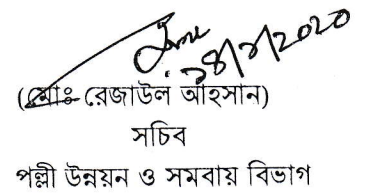 (মোঃ রেজাউল আহসান)
সচিব
পল্লী উন্নয়ন ও সমবায় বিভাগ